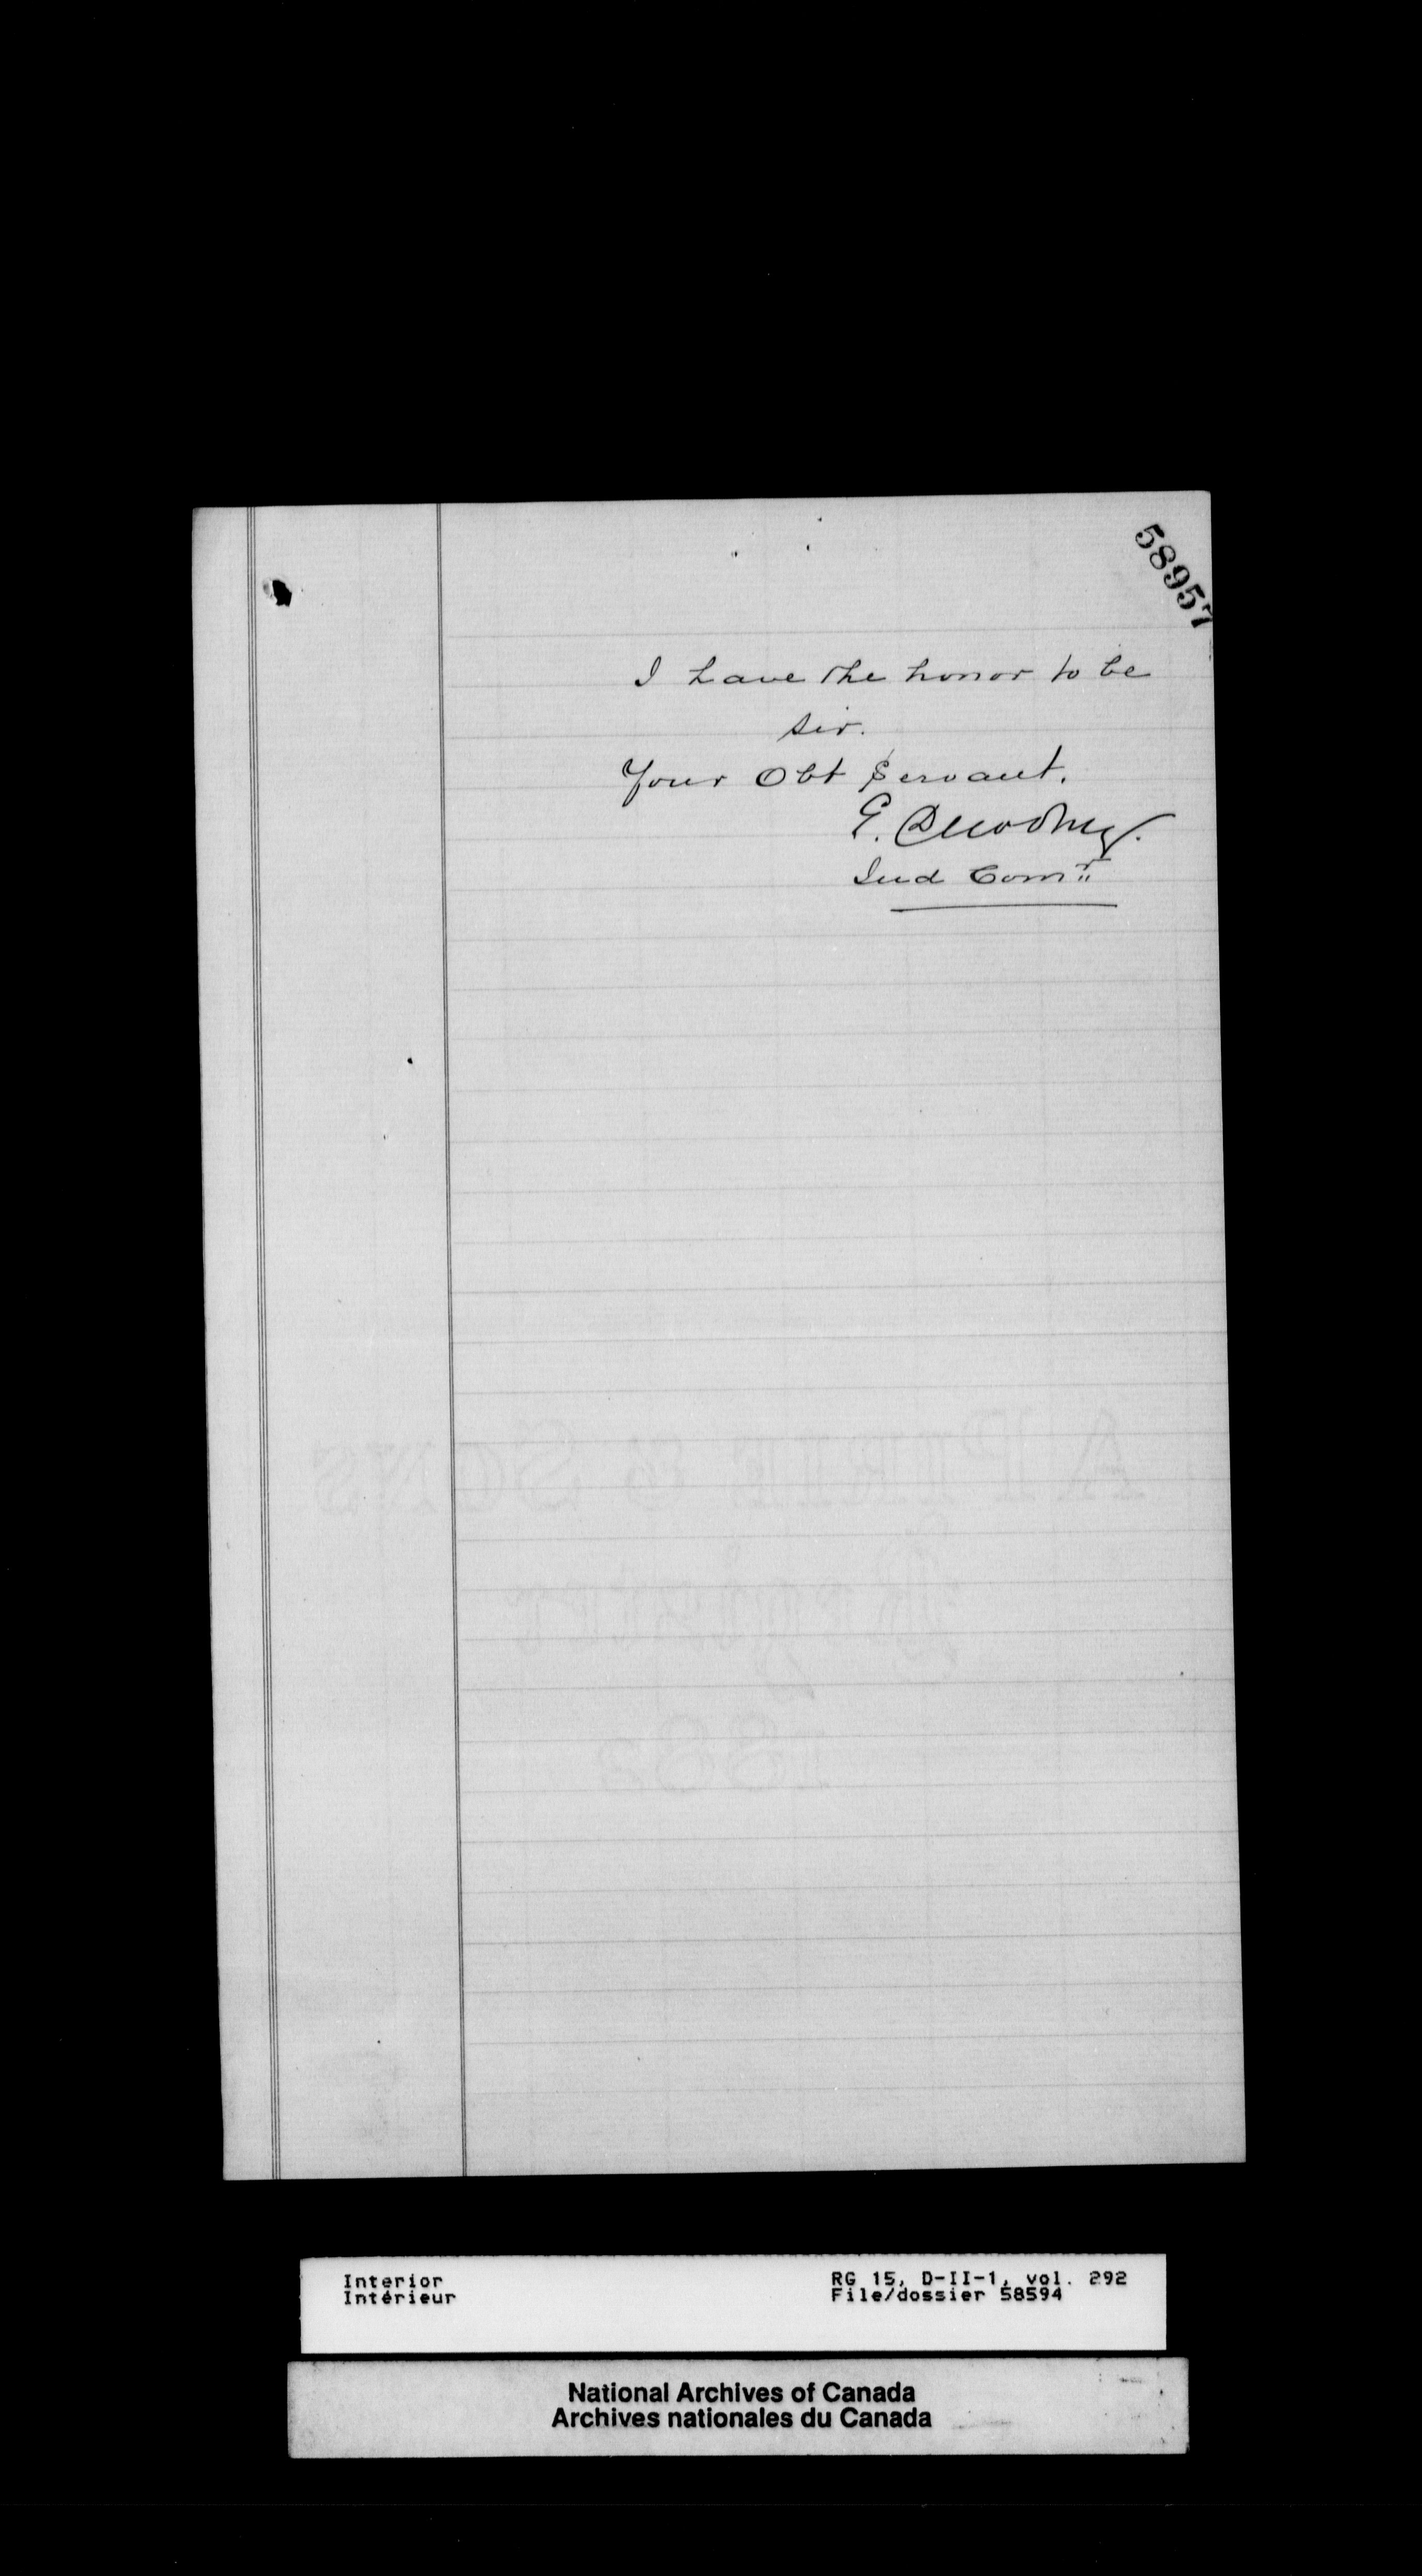 58957
I have the honor to be
Sir.
Your Obt Servant.
E. Dewdney.
Ind Comr
A PIRIE & SONS
Register
1882
Interior
Intérieur
RG 15, D-II-1, vol. 292
File/dossier 58594
National Archives of Canada
Archives nationales du Canada